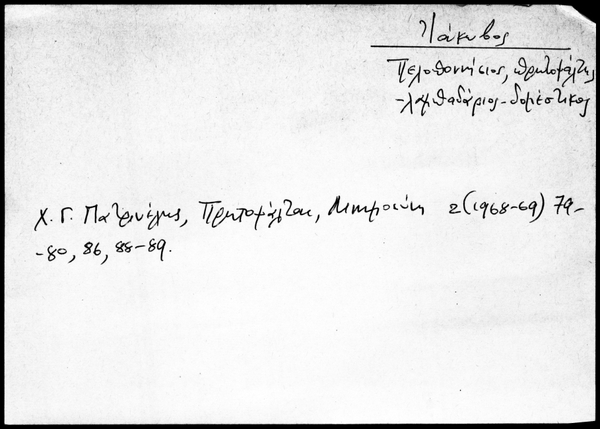 Ἰάκωβος
Πελοποννήσιος, πρωτοψάλτης
-λαμπαδάριος-δομέστικος
Χ. Γ. Πατρινέλης, Πρωτοψάλται, Μνημοσύνη 2(1968-69) 79-
-80, 86, 88-89.